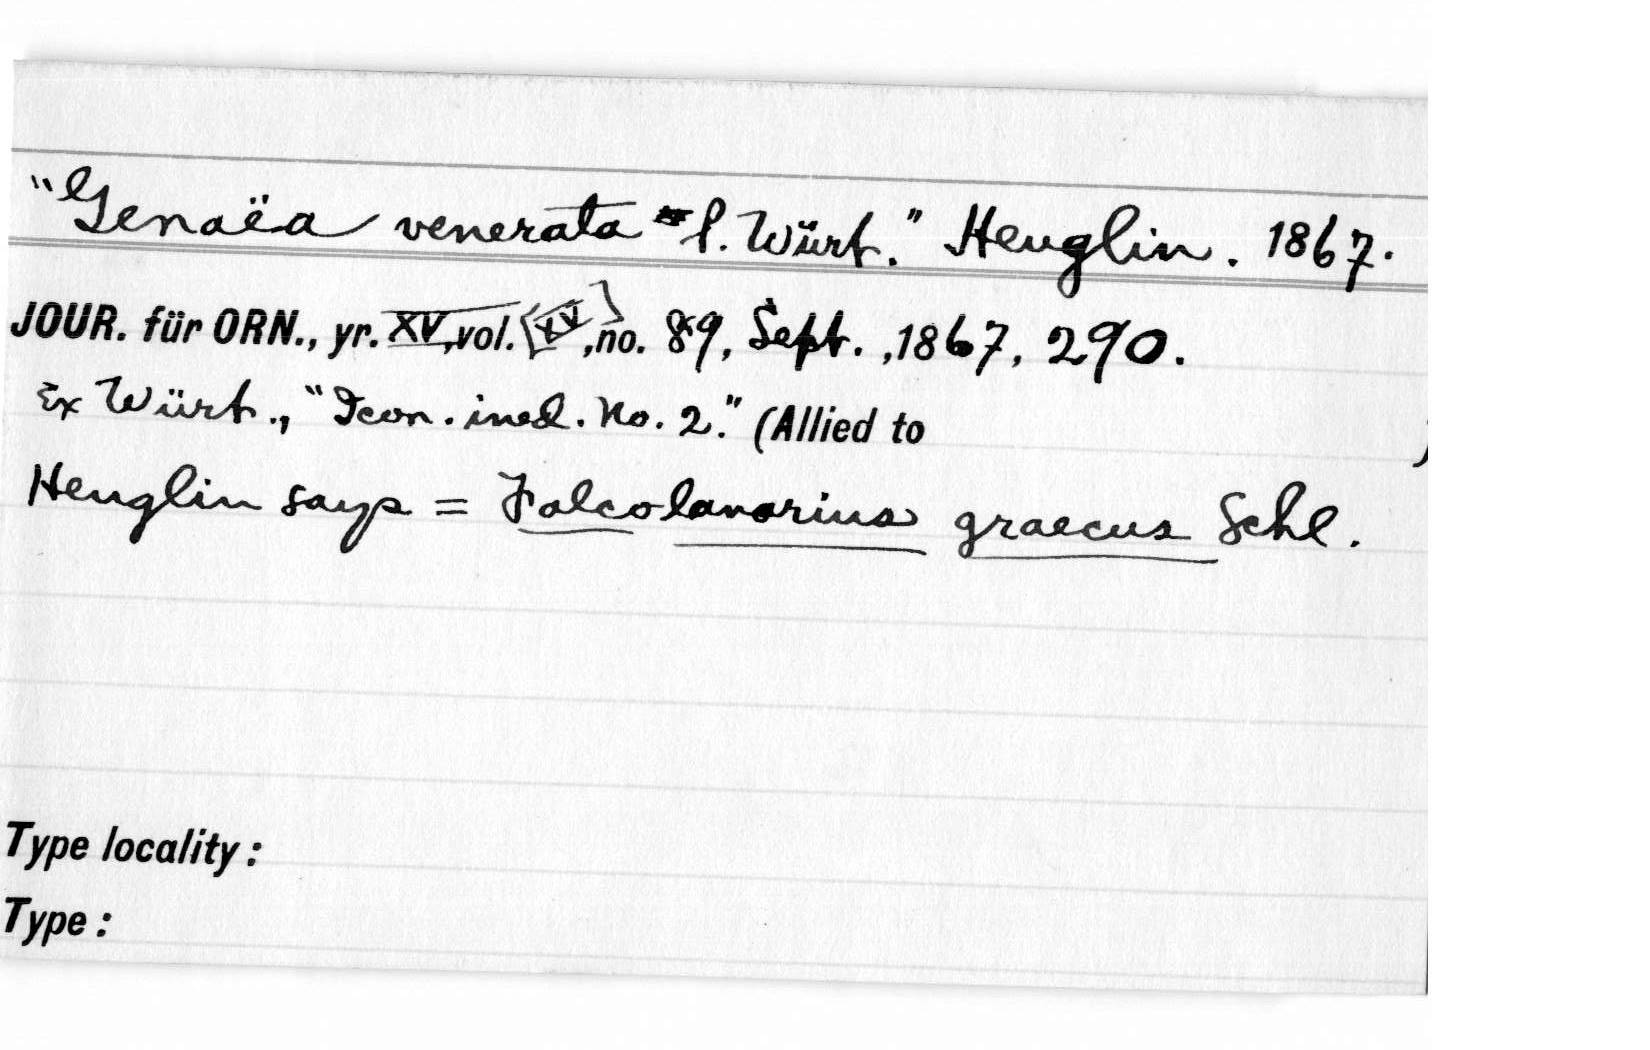 "Genaëa venerata P. Würt." Heuglin. 1867.
JOUR. für ORN., yr. XV, vol. [XV], no. 89, Sept. ,1867, 290.
Ex Würt., "Icon. ined. No. 2." (Allied to )
Heuglin says = Falco lanarius graecus Schl.
Type locality :
Type :